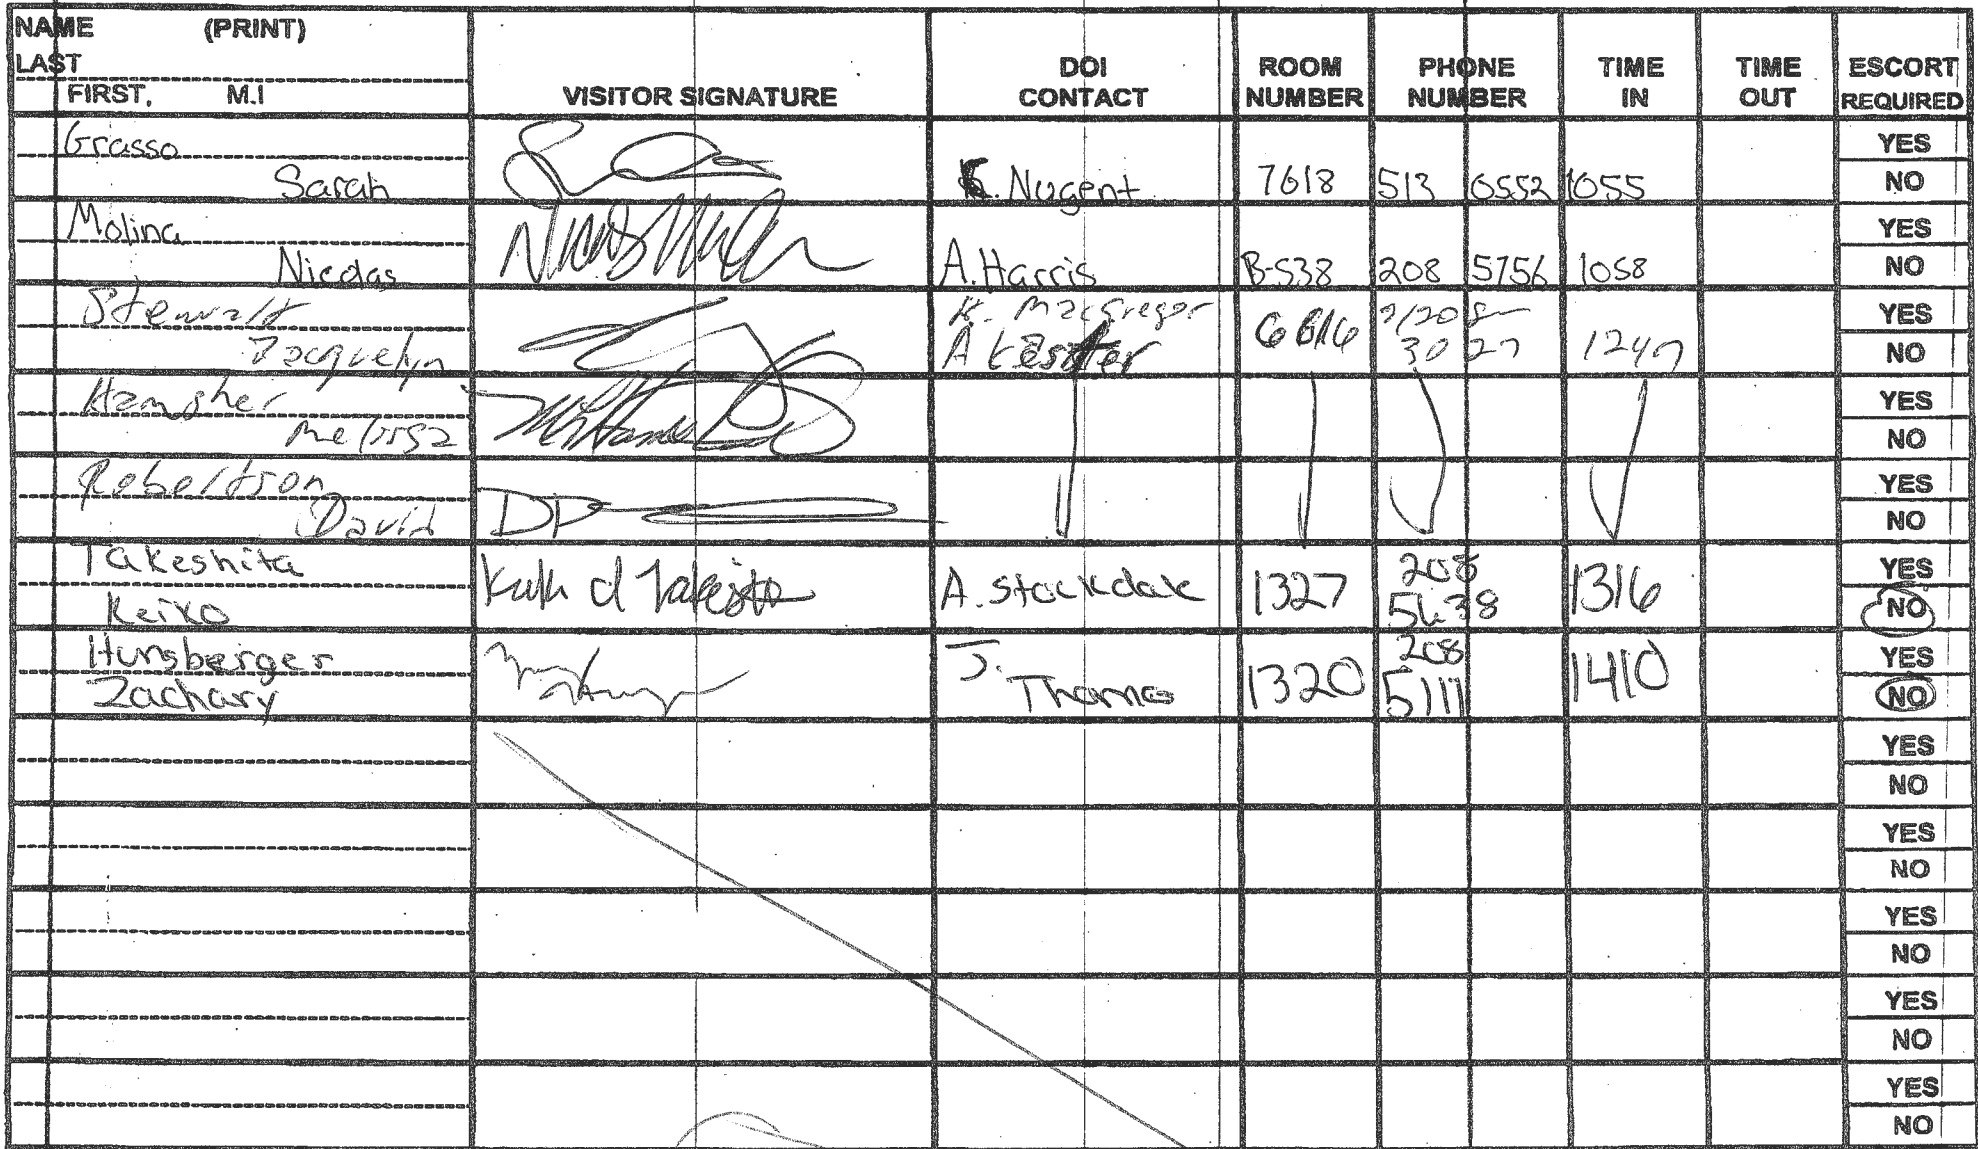 NAME (PRINT)
LAST
FIRST, M.I
VISITOR SIGNATURE
DOI
CONTACT
ROOM
NUMBER
PHONE
NUMBER
TIME
IN
TIME
OUT
ESCORT
REQUIRED
Grasso
Sarah
K. Nugent 7618 513 0552 1055
YES
NO
Molina
Nicolas
A. Harris B-538 208 5756 1058
YES
NO
Stewart
Jacquelyn
K. MacGregor
A 1247
YES
NO
Hampsher
Melissa
YES
NO
Robertson
David
YES
NO
Takeshita
Keiko
A. Stockdale 1327 208
5638
1316
YES
NO
Hunsberger
Zachary
J.
Thomas
1320 208
5111
1410
YES
NO
YES
NO
YES
NO
YES
NO
YES
NO
YES
NO